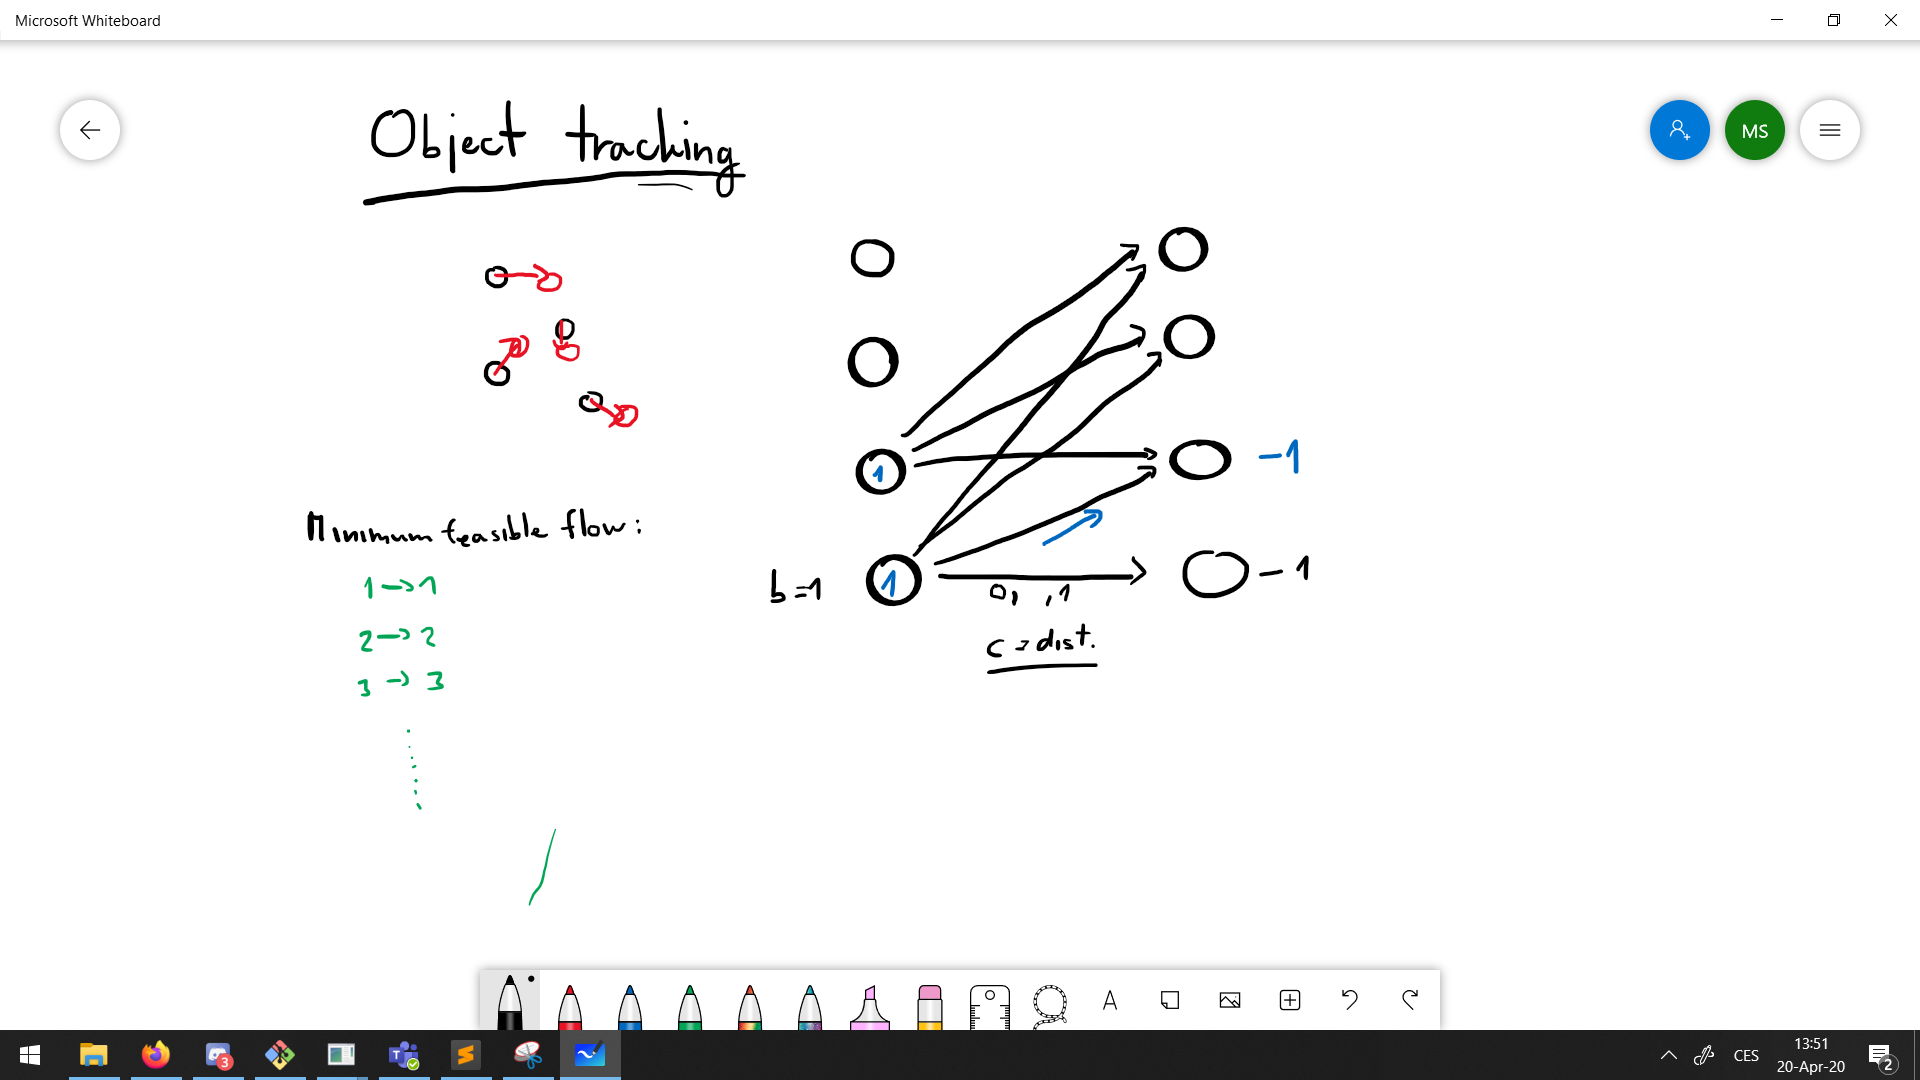 Microsoft Whiteboard
MS
Object tracking
Minimum feasible flow:
1 → 1
2 → 2
3 → 3
1
-1
b=1
1
-1
0, ,1
c = dist.
A
3
CES
13:51
20-Apr-20
2